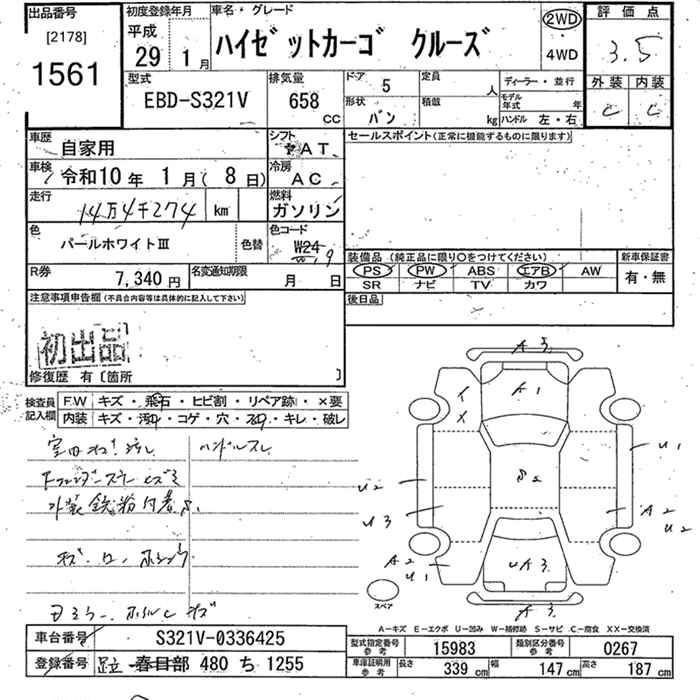 出品番号
[2178]
1561
初度登録年月
平成
29 1月
車名・グレード
ハイゼットカーゴ クルーズ
2WD
・
4WD
評価点
3.5
外装 内装
C C
型式
EBD-S321V
排気量
658
CC
ドア 5
形状 バン
定員 人
積載 kg
ディーラー・並行
モデル年式 年
ハンドル 左・右
車歴 自家用
シフト AT
セールスポイント(正常に機能するものに限ります)
車検 令和10年 1月( 8日)
冷房 AC
走行 14万4千274 km
燃料 ガソリン
色 パールホワイトIII
色替
色コード W24
W19
装備品(純正品に限り○をつけてください)
PS PW ABS エアB AW
SR ナビ TV カワ
新車保証書
有・無
R券 7,340円
名変通知期限 月 日
後日品
注意事項申告欄(不具合内容等は具体的に記入して下さい)
初出品
修復歴 有〔箇所 〕
検査員記入欄
FW キズ・飛石・ヒビ割・リペア跡・×要
内装 キズ・汚れ・コゲ・穴・スレ・キレ・破レ
ハンドルスレ
外装鉄粉付着
A3
A1
U1
U2
U3
A2
U2
A2
U1
UA3
A3
スペア
A-キズ E-エクボ U-凹み W-補修跡 S-サビ C-腐食 XX-交換済
車台番号 S321V-0336425
登録番号 足立 春日部 480 ち 1255
型式指定番号 参考 15983
類別区分番号 参考 0267
車庫証明用 参考
長さ 339cm 幅 147cm 高さ 187cm